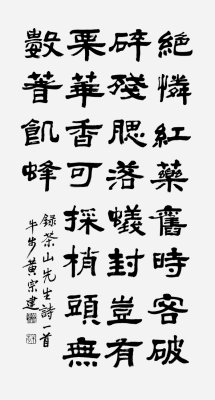 絶憐紅藥舊時客破
碎殘腮落蟻封豈有
栗華香可採梢頭無
數著飢蜂
録茶山先生詩一首
牛步黃宗建